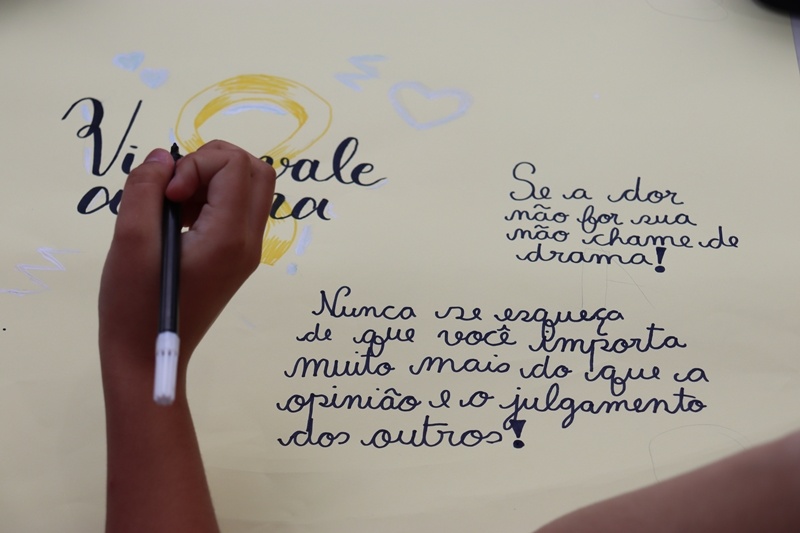 vale
a
Se a dor
não for sua
não chame de
drama!
Nunca se esqueça
de que você importa
muito mais do que a
opinião e o julgamento
dos outros!